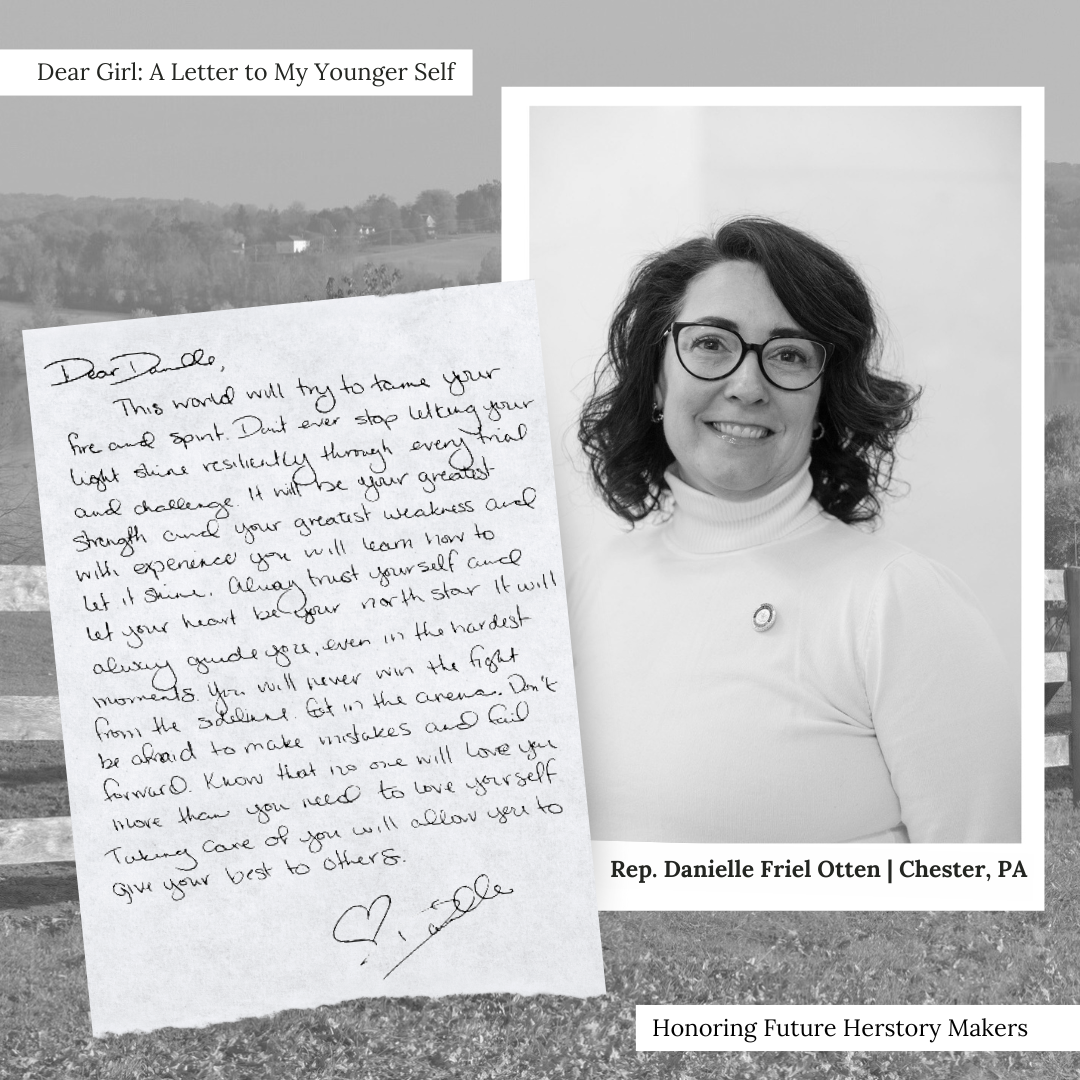 Dear Girl: A Letter to My Younger Self
Dear Danielle,
This world will try to tame your
fire and spirit. Don't ever stop letting your
light shine resiliently through every trial
and challenge. It will be your greatest
strength and your greatest weakness and
with experience you will learn how to
let it shine. Alway trust yourself and
let your heart be your north star It will
alway guide you, even in the hardest
moments. You will never win the fight
from the sideline. Get in the arena. Don't
be afraid to make mistakes and fail
forward. Know that no one will love you
more than you need to love yourself
Taking care of you will allow you to
give your best to others.
♡, Danielle
Rep. Danielle Friel Otten | Chester, PA
Honoring Future Herstory Makers